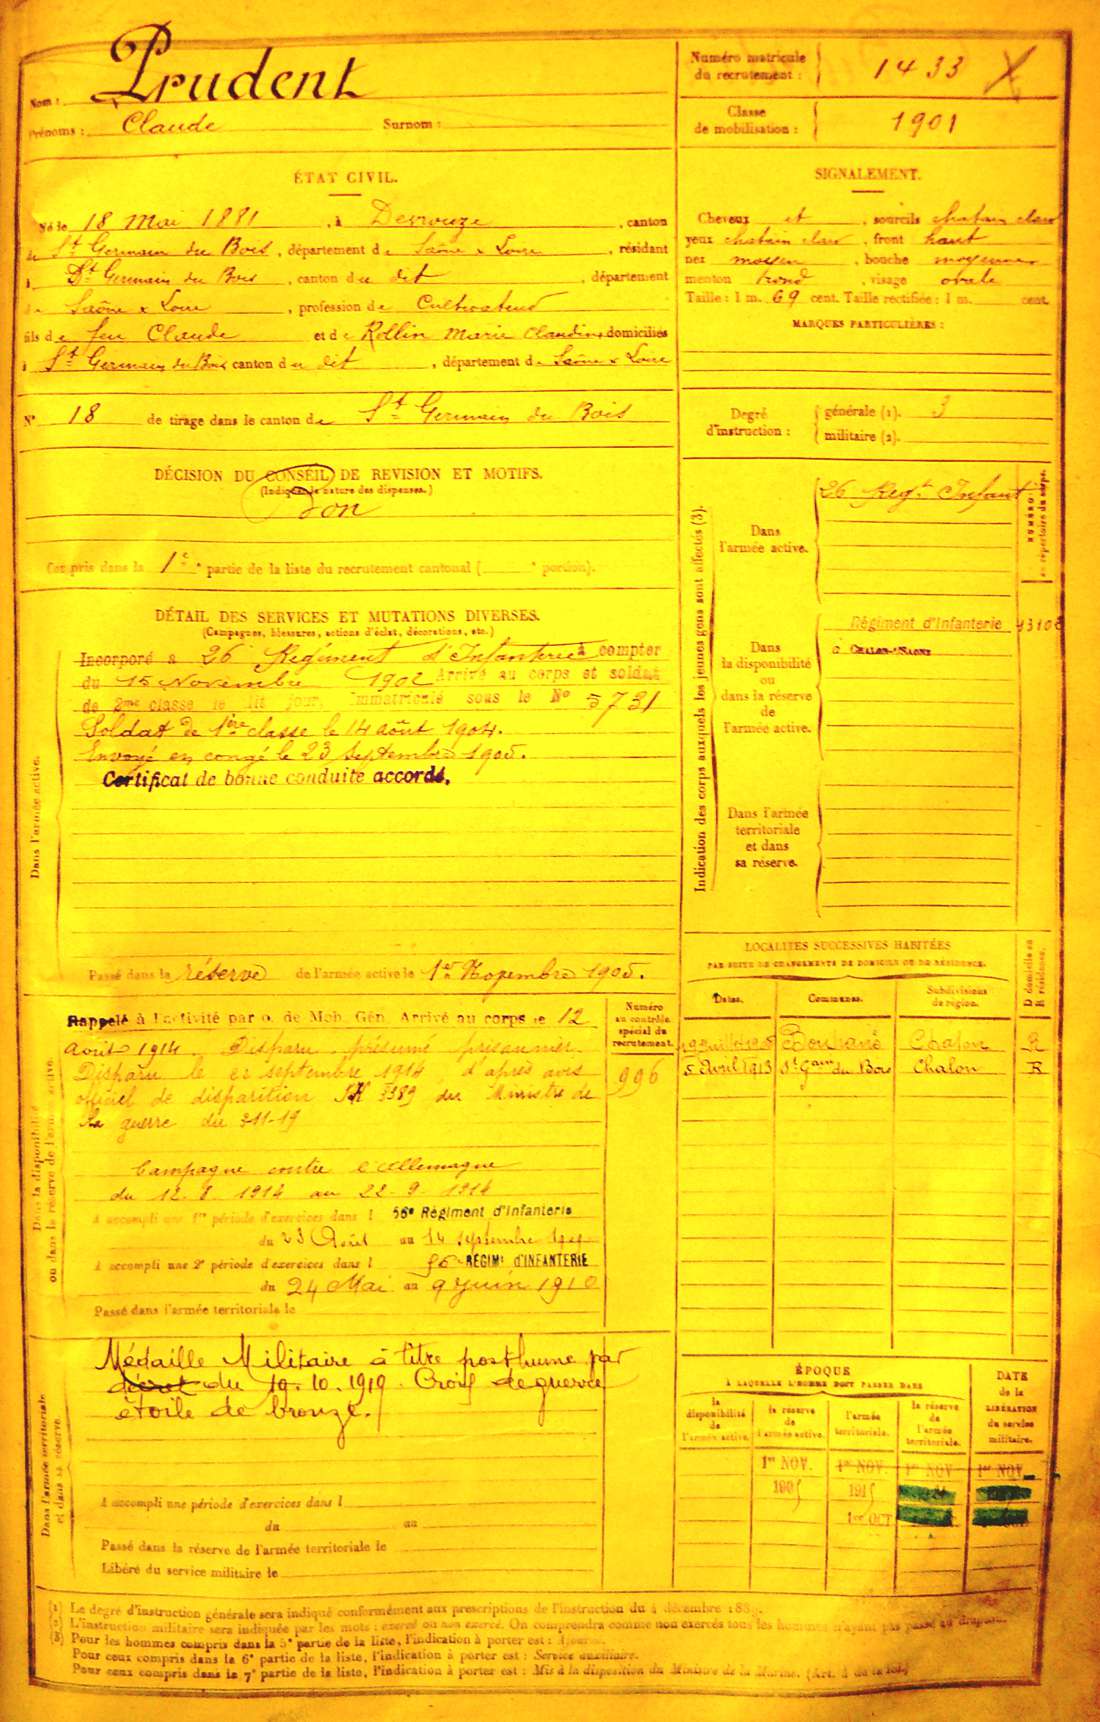 Nom : Prudent
Prénoms : Claude Surnom :
Numéro matricule
du recrutement : 1433
Classe
de mobilisation : 1901
ÉTAT CIVIL.
Né le 18 Mai 1881, à Devrouze, canton
de St Germain du Bois, département de Saône & Loire, résidant
à St Germain du Bois, canton du dit, département
de Saône & Loire, profession de Cultivateur
fils de feu Claude et de Rollin Marie Claudine domiciliés
à St Germain du Bois canton du dit, département de Saône & Loire
N° 18 de tirage dans le canton de St Germain du Bois
SIGNALEMENT.
Cheveux et, sourcils chatain clair
yeux chatain clair, front haut
nez moyen, bouche moyenne
menton rond, visage ovale
Taille : 1 m. 69 cent. Taille rectifiée : 1 m. cent.
MARQUES PARTICULIÈRES :
Degré
d'instruction :
générale (1). 3
militaire (2).
DÉCISION DU CONSEIL DE REVISION ET MOTIFS.
(Indiquer la nature des dispenses.)
Bon
Compris dans la 1e partie de la liste du recrutement cantonal ( portion).
DÉTAIL DES SERVICES ET MUTATIONS DIVERSES.
(Campagnes, blessures, actions d'éclat, décorations, etc.)
Dans l'armée active.
Incorporé a 26 Régiment d'Infanterie à compter
du 15 Novembre 1902 Arrivé au corps et soldat
de 2me classe le dit jour. immatriculé sous le No 5731
Soldat de 1ère classe le 14 août 1904.
Envoyé en congé le 23 Septembre 1905.
Certificat de bonne conduite accordé.
Passé dans la réserve de l'armée active le 1er Novembre 1905.
Indication des corps auxquels les jeunes gens sont affectés (3).
NUMÉRO
au répertoire du corps.
Dans
l'armée active.
26 Régt Infant
Dans
la disponibilité
ou
dans la réserve
de
l'armée active.
Régiment d'Infanterie
à CHALON-s/SAONE
Dans l'armée
territoriale
et dans
sa réserve.
Dans la disponibilité
ou dans la réserve de l'armée active.
Rappelé à l'activité par o. de Mob. Gén. Arrivé au corps le 12
Août 1914. Disparu présumé prisonnier.
Disparu le 22 septembre 1914, d'après avis
officiel de disparition du Ministre de
la guerre du
Campagne contre l'Allemagne
du 12. 8. 1914 au 22. 9. 1914
A accompli une 1re période d'exercices dans l 56e Régiment d'Infanterie
du 23 Août au 14 septembre
A accompli une 2e période d'exercices dans l 56e RÉGIMt d'INFANTERIE
du 24 Mai au 9 Juin 1910
Passé dans l'armée territoriale le
Numéro
au contrôle
spécial du
recrutement.
996
LOCALITÉS SUCCESSIVES HABITÉES
PAR SUITE DE CHANGEMENTS DE DOMICILE OU DE RÉSIDENCE.
Dates. Communes. Subdivisions
de région. D domicile ou
R résidence.
Chalon R
5 Avril 1913 St Gain du Bois Chalon R
Dans l'armée territoriale
et dans sa réserve.
Médaille Militaire à titre posthume par
décret du 19. 10. 1919. Croix de guerre
étoile de bronze.
A accompli une période d'exercices dans l
du au
Passé dans la réserve de l'armée territoriale le
Libéré du service militaire le
ÉPOQUE
À LAQUELLE L'HOMME DOIT PASSER DANS
la
disponibilité
de
l'armée active.
la réserve
de
l'armée active.
l'armée
territoriale.
la réserve
de
l'armée
territoriale.
DATE
de la
LIBÉRATION
du service
militaire.
1er NOV. 1er NOV. 1er NOV 1er NOV
1905 1915
1er OCT
Le degré d'instruction générale sera indiqué conformément aux prescriptions de l'instruction du 4 décembre
L'instruction militaire sera indiquée par les mots : exercé ou non exercé. On comprendra comme non exercés tous les hommes n'ayant pas passé au drapeau.
Pour les hommes compris dans la 5e partie de la liste, l'indication à porter est : Ajourné.
Pour ceux compris dans la 6e partie de la liste, l'indication à porter est : Service auxiliaire.
Pour ceux compris dans la 7e partie de la liste, l'indication à porter est : Mis à la disposition du Ministre de la Marine. (Art. 4 de la loi.)